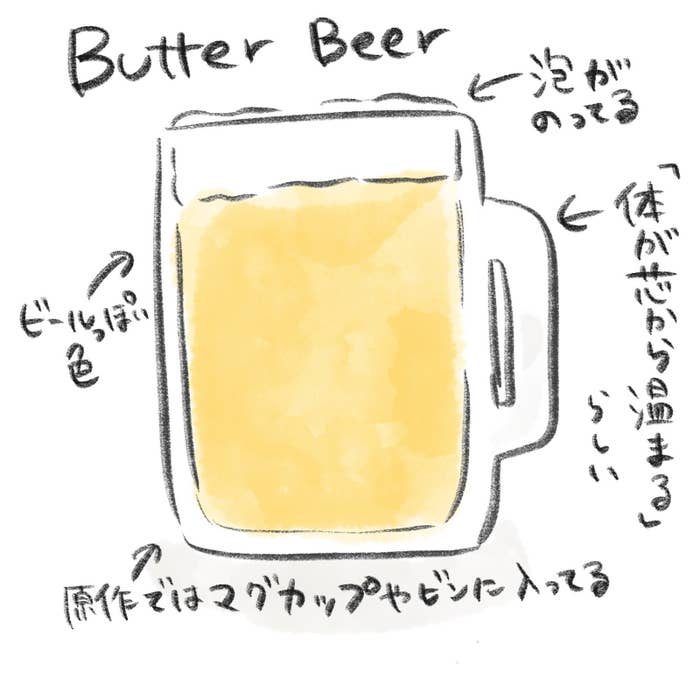 Butter Beer
泡が
のってる
「体が芯から温まる」
らしい
ビールっぽい
色
原作ではマグカップやビンに入ってる